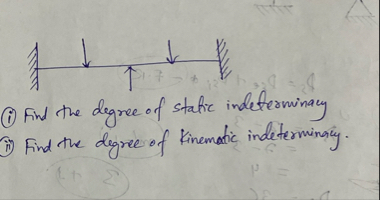 (i) Find the degree of static indeterminacy
(ii) Find the degree of Kinematic indeterminacy.